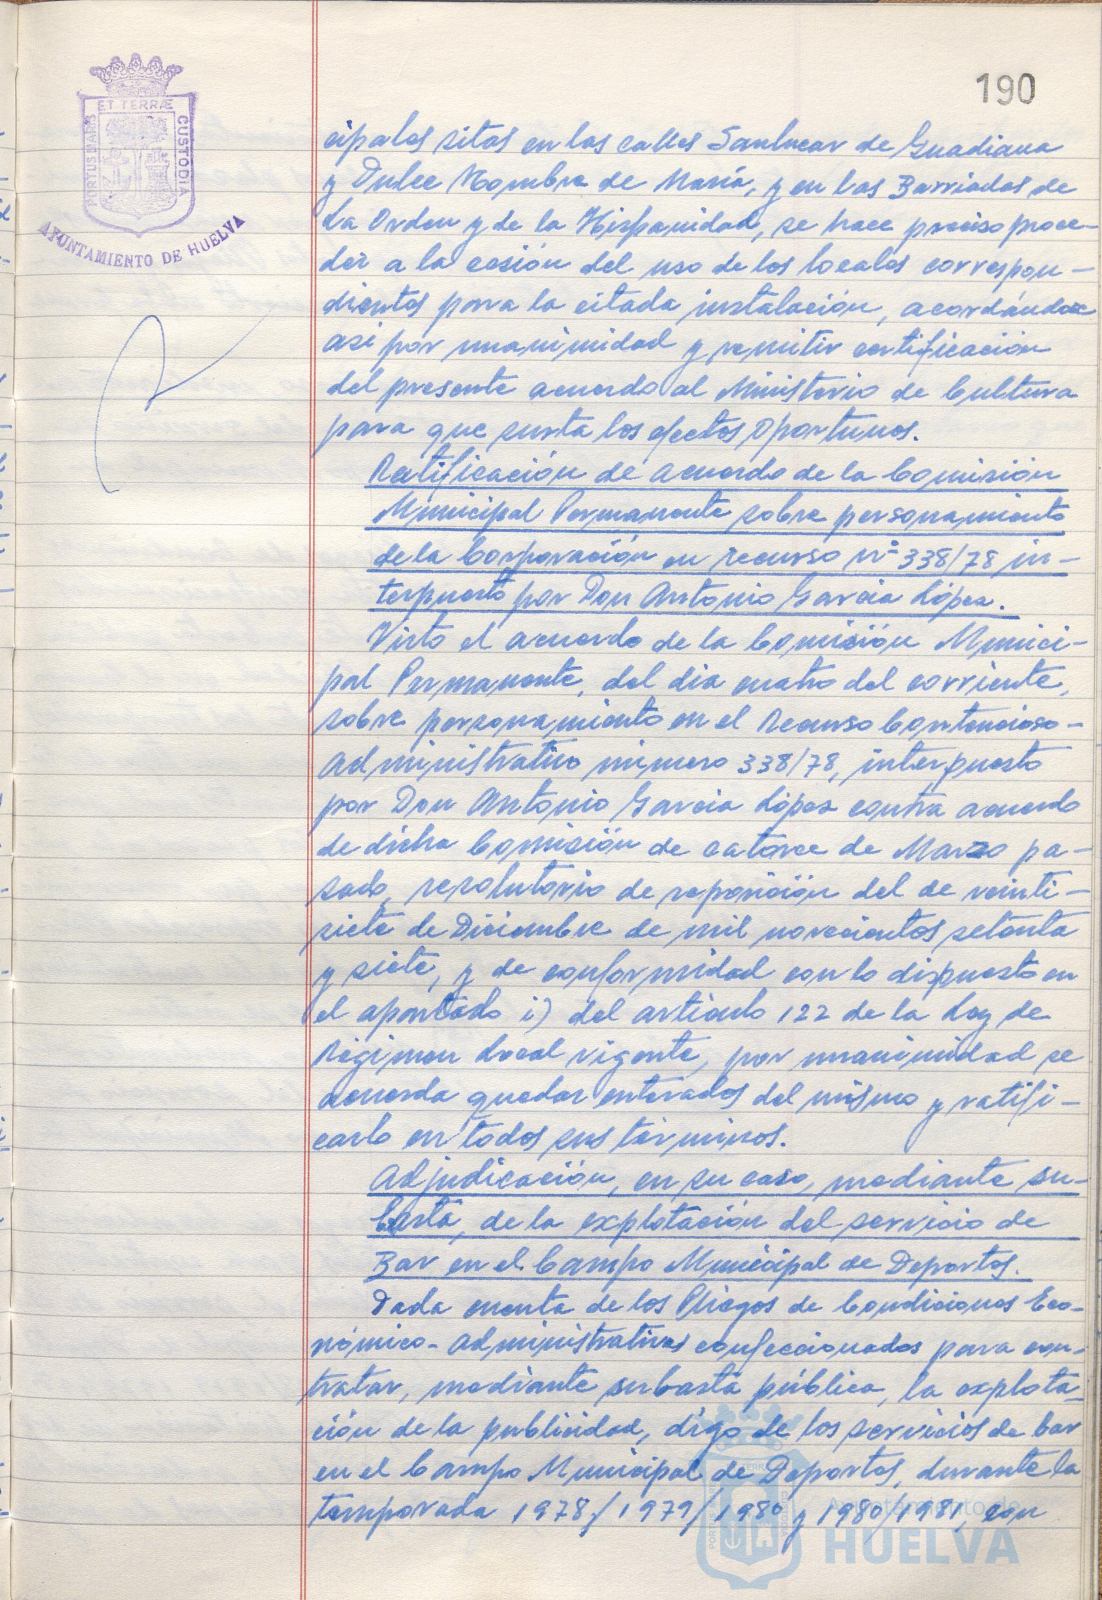 190
ET TERRÆ
PORTUS MARIS
CUSTODIA
AYUNTAMIENTO DE HUELVA
cipales sitos en las calles Sanlucar de Guadiana
y Dulce Nombre de María, y en las Barriadas de
La Orden y de la Hispanidad, se hace preciso proce-
der a la cesión del uso de los locales correspon-
dientes para la citada instalación, acordándose
así por unanimidad y remitir certificación
del presente acuerdo al Ministerio de Cultura
para que surta los efectos oportunos.
Ratificación de acuerdo de la Comisión
Municipal Permanente sobre personamiento
de la Corporación en recurso nº 338/78 in-
terpuesto por Don Antonio García López.
Visto el acuerdo de la Comisión Munici-
pal Permanente, del día cuatro del corriente,
sobre personamiento en el Recurso Contencioso-
Administrativo número 338/78, interpuesto
por Don Antonio García López contra acuerdo
de dicha Comisión de catorce de Marzo pa-
sado, resolutorio de reposición del de veinti-
siete de Diciembre de mil novecientos setenta
y siete, y de conformidad con lo dispuesto en
el apartado i) del artículo 122 de la Ley de
Régimen Local vigente, por unanimidad se
acuerda quedar enterados del mismo y ratifi-
carlo en todos sus términos.
Adjudicación, en su caso, mediante su-
basta, de la explotación del servicio de
Bar en el Campo Municipal de Deportes.
Dada cuenta de los Pliegos de Condiciones Eco-
nómico-Administrativas confeccionados para con-
tratar, mediante subasta pública, la explota-
ción de la publicidad, digo de los servicios de bar
en el Campo Municipal de Deportes, durante la
temporada 1978/1979/1980 y 1980/1981, con
Ayuntamiento de
HUELVA